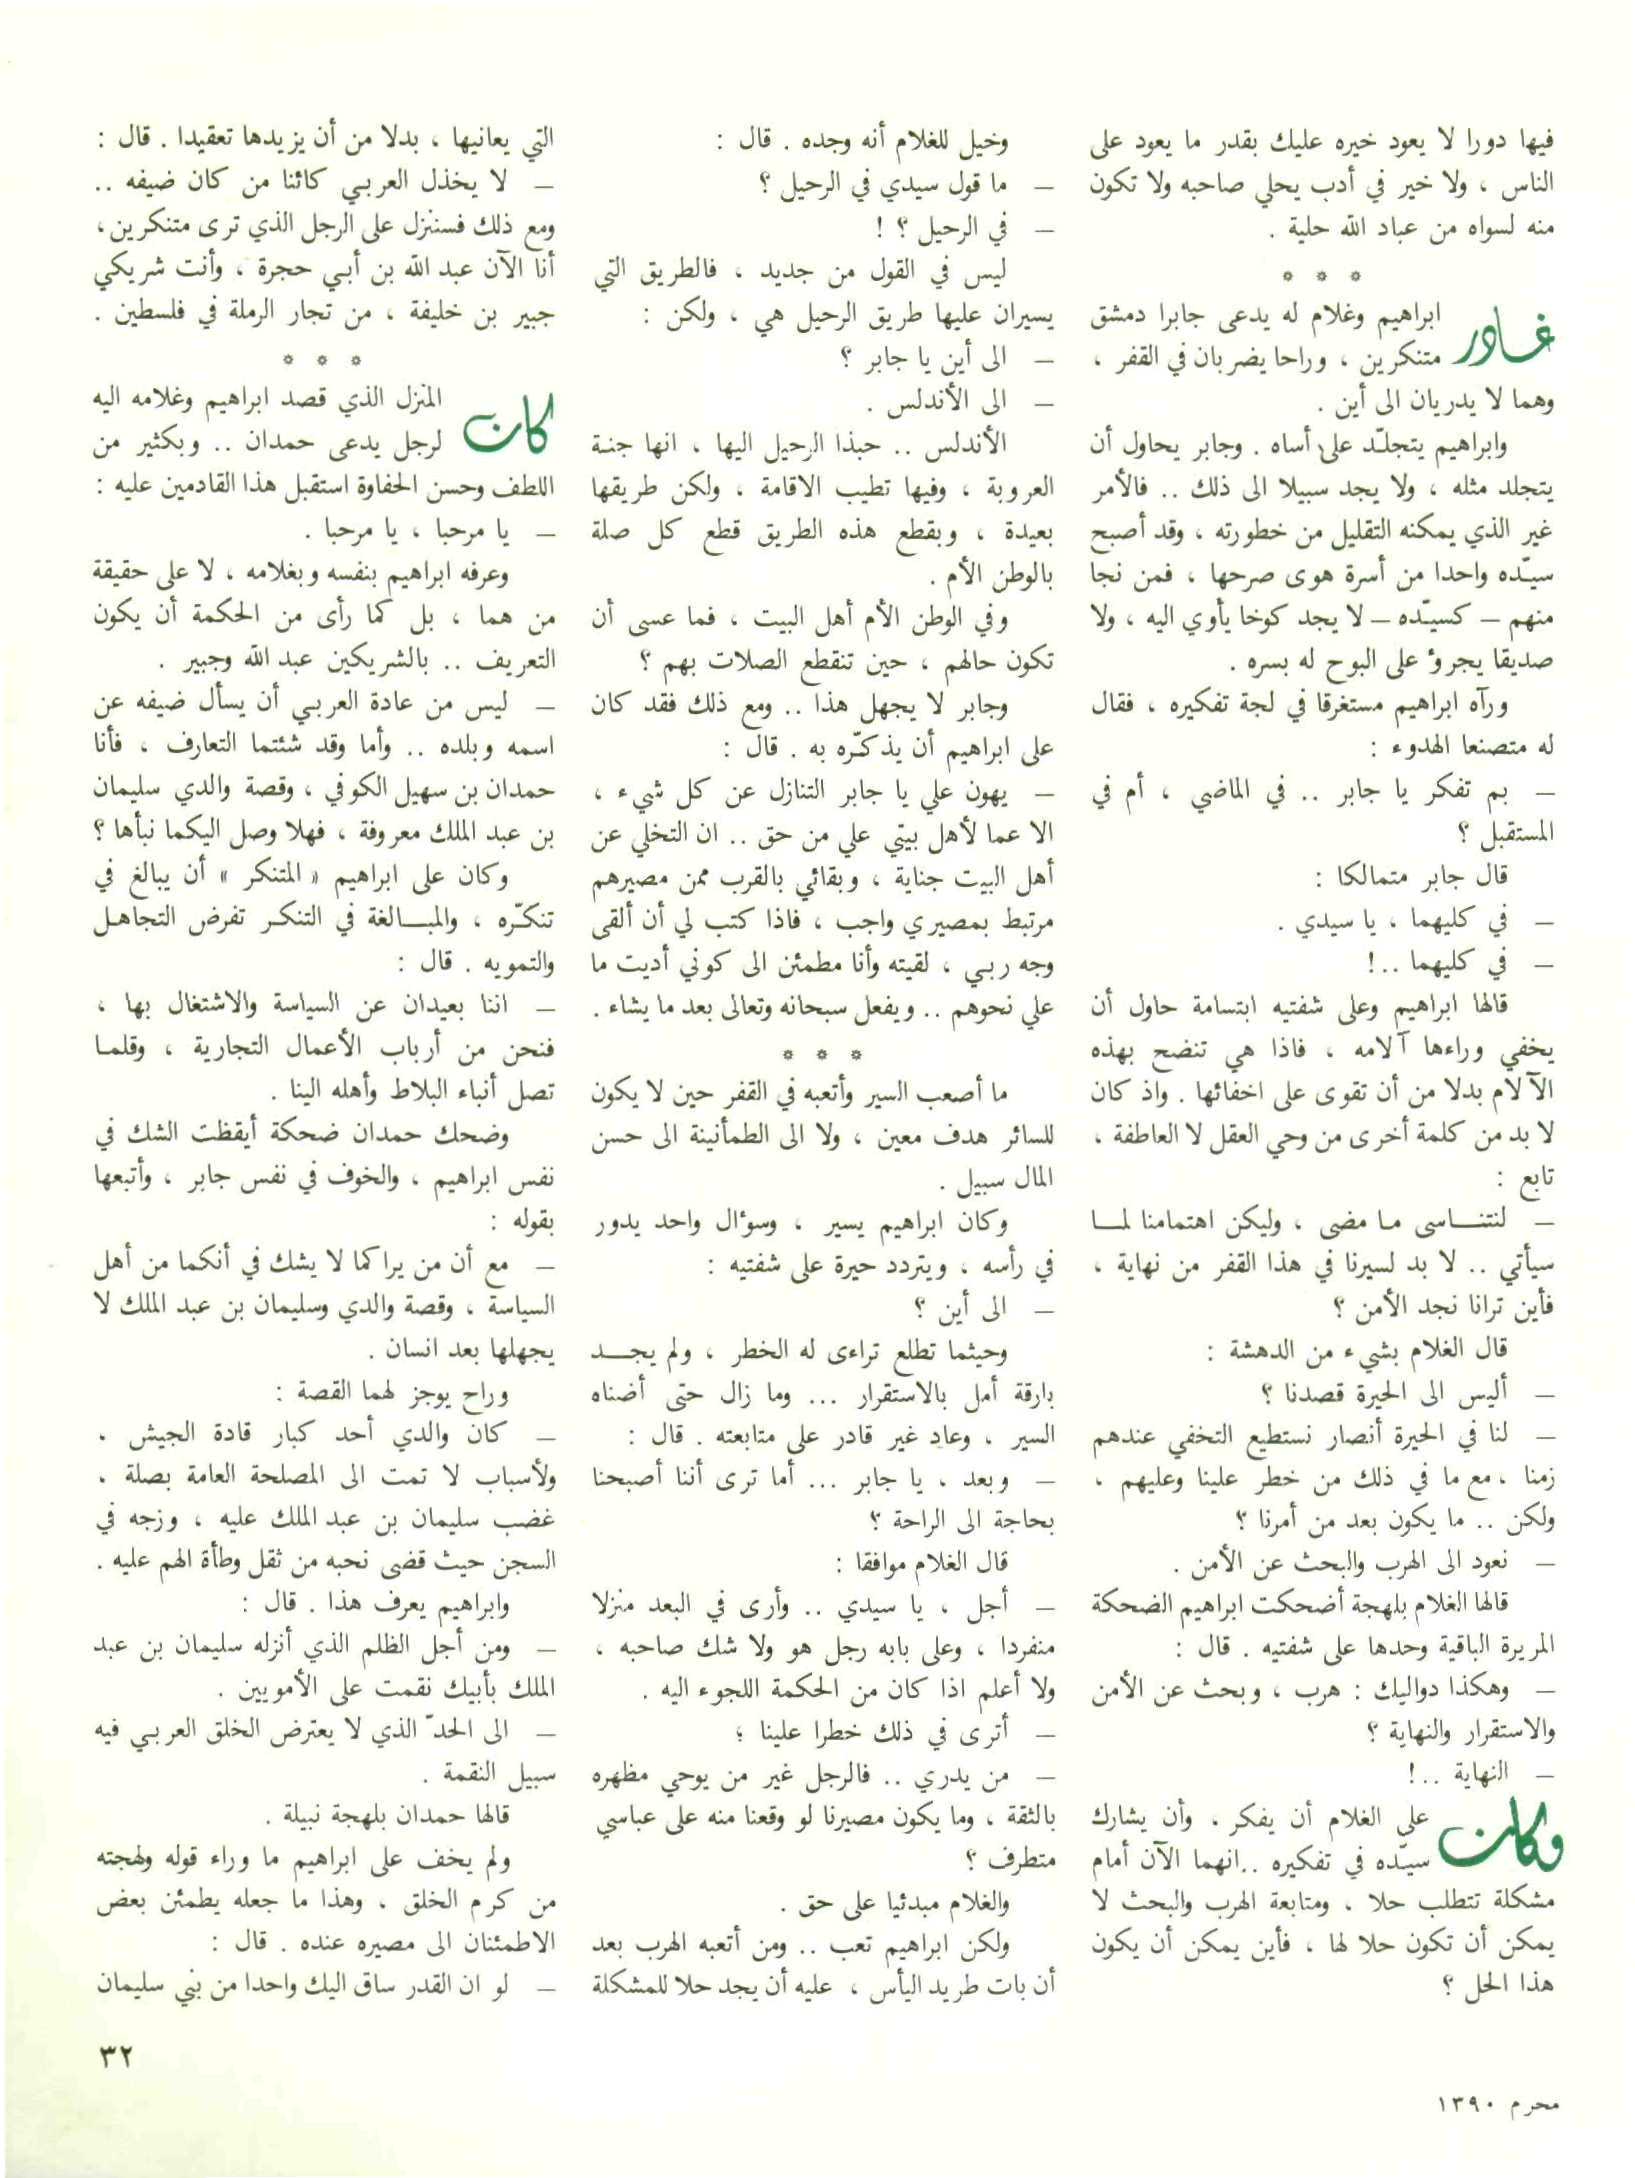 فيها دورا لا يعود خيره عليك بقدر ما يعود على
الناس ، ولا خير في أدب يحلي صاحبه ولا تكون
منه لسواه من عباد الله حلية .
* * *
غادر ابراهيم وغلام له يدعى جابرا دمشق
متنكرين ، وراحا يضربان في القفر ،
وهما لا يدريان الى أين .
وابراهيم يتجلّد على أساه . وجابر يحاول أن
يتجلد مثله ، ولا يجد سبيلا الى ذلك .. فالأمر
غير الذي يمكنه التقليل من خطورته ، وقد أصبح
سيّده واحدا من أسرة هوى صرحها ، فمن نجا
منهم – كسيّده – لا يجد كوخا يأوي اليه ، ولا
صديقا يجرؤ على البوح له بسره .
ورآه ابراهيم مستغرقا في لجة تفكيره ، فقال
له متصنعا الهدوء :
– بم تفكر يا جابر .. في الماضي ، أم في
المستقبل ؟
قال جابر متمالكا :
– في كليهما ، يا سيدي .
– في كليهما ..!
قالها ابراهيم وعلى شفتيه ابتسامة حاول أن
يخفي وراءها آلامه ، فاذا هي تنضح بهذه
الآلام بدلا من أن تقوى على اخفائها . واذ كان
لا بد من كلمة أخرى من وحي العقل لا العاطفة ،
تابع :
– لنتناسى ما مضى ، وليكن اهتمامنا لما
سيأتي .. لا بد لسيرنا في هذا القفر من نهاية ،
فأين ترانا نجد الأمن ؟
قال الغلام بشيء من الدهشة :
– أليس الى الحيرة قصدنا ؟
– لنا في الحيرة أنصار نستطيع التخفي عندهم
زمنا ، مع ما في ذلك من خطر علينا وعليهم ،
ولكن .. ما يكون بعد من أمرنا ؟
– نعود الى الهرب والبحث عن الأمن .
قالها الغلام بلهجة أضحكت ابراهيم الضحكة
المريرة الباقية وحدها على شفتيه . قال :
– وهكذا دواليك : هرب ، وبحث عن الأمن
والاستقرار والنهاية ؟
– النهاية ..!
وكان على الغلام أن يفكر ، وأن يشارك
سيّده في تفكيره .. انهما الآن أمام
مشكلة تتطلب حلا ، ومتابعة الهرب والبحث لا
يمكن أن تكون حلا لها ، فأين يمكن أن يكون
هذا الحل ؟
وخيل للغلام أنه وجده . قال :
– ما قول سيدي في الرحيل ؟
– في الرحيل ؟ !
ليس في القول من جديد ، فالطريق التي
يسيران عليها طريق الرحيل هي ، ولكن :
– الى أين يا جابر ؟
– الى الأندلس .
الأندلس .. حبذا الرحيل اليها ، انها جنة
العروبة ، وفيها تطيب الاقامة ، ولكن طريقها
بعيدة ، وبقطع هذه الطريق قطع كل صلة
بالوطن الأم .
وفي الوطن الأم أهل البيت ، فما عسى أن
تكون حالهم ، حين تنقطع الصلات بهم ؟
وجابر لا يجهل هذا .. ومع ذلك فقد كان
على ابراهيم أن يذكّره به . قال :
– يهون علي يا جابر التنازل عن كل شيء ،
الا عما لأهل بيتي علي من حق .. ان التخلي عن
أهل البيت جناية ، وبقائي بالقرب ممن مصيرهم
مرتبط بمصيري واجب ، فاذا كتب لي أن ألقى
وجه ربي ، لقيته وأنا مطمئن الى كوني أديت ما
علي نحوهم .. ويفعل سبحانه وتعالى بعد ما يشاء .
* * *
ما أصعب السير وأتعبه في القفر حين لا يكون
للسائر هدف معين ، ولا الى الطمأنينة الى حسن
المال سبيل .
وكان ابراهيم يسير ، وسؤال واحد يدور
في رأسه ، ويتردد حيرة على شفتيه :
– الى أين ؟
وحيثما تطلع تراءى له الخطر ، ولم يجد
بارقة أمل بالاستقرار ... وما زال حتى أضناه
السير ، وعاد غير قادر على متابعته . قال :
– وبعد ، يا جابر ... أما ترى أننا أصبحنا
بحاجة الى الراحة ؟
قال الغلام موافقا :
– أجل ، يا سيدي .. وأرى في البعد منزلا
منفردا ، وعلى بابه رجل هو ولا شك صاحبه ،
ولا أعلم اذا كان من الحكمة اللجوء اليه .
– أترى في ذلك خطرا علينا ؛
– من يدري .. فالرجل غير من يوحي مظهره
بالثقة ، وما يكون مصيرنا لو وقعنا منه على عباسي
متطرف ؟
والغلام مبدئيا على حق .
ولكن ابراهيم تعب .. ومن أتعبه الهرب بعد
أن بات طريد اليأس ، عليه أن يجد حلا للمشكلة
التي يعانيها ، بدلا من أن يزيدها تعقيدا . قال :
– لا يخذل العربي كائنا من كان ضيفه ..
ومع ذلك فسننزل على الرجل الذي ترى متنكرين ،
أنا الآن عبد الله بن أبي حجرة ، وأنت شريكي
جبير بن خليفة ، من تجار الرملة في فلسطين .
* * *
كان المنزل الذي قصد ابراهيم وغلامه اليه
لرجل يدعى حمدان .. وبكثير من
اللطف وحسن الحفاوة استقبل هذا القادمين عليه :
– يا مرحبا ، يا مرحبا .
وعرفه ابراهيم بنفسه وبغلامه ، لا على حقيقة
من هما ، بل كما رأى من الحكمة أن يكون
التعريف .. بالشريكين عبد الله وجبير .
– ليس من عادة العربي أن يسأل ضيفه عن
اسمه وبلده .. وأما وقد شئتما التعارف ، فأنا
حمدان بن سهيل الكوفي ، وقصة والدي سليمان
بن عبد الملك معروفة ، فهلا وصل اليكما نبأها ؟
وكان على ابراهيم « المتنكر » أن يبالغ في
تنكّره ، والمبالغة في التنكر تفرض التجاهل
والتمويه . قال :
– اننا بعيدان عن السياسة والاشتغال بها ،
فنحن من أرباب الأعمال التجارية ، وقلما
تصل أنباء البلاط وأهله الينا .
وضحك حمدان ضحكة أيقظت الشك في
نفس ابراهيم ، والخوف في نفس جابر ، وأتبعها
بقوله :
– مع أن من يراكما لا يشك في أنكما من أهل
السياسة ، وقصة والدي وسليمان بن عبد الملك لا
يجهلها بعد انسان .
وراح يوجز لهما القصة :
– كان والدي أحد كبار قادة الجيش ،
ولأسباب لا تمت الى المصلحة العامة بصلة ،
غضب سليمان بن عبد الملك عليه ، وزجه في
السجن حيث قضى نحبه من ثقل وطأة الهم عليه .
وابراهيم يعرف هذا . قال :
– ومن أجل الظلم الذي أنزله سليمان بن عبد
الملك بأبيك نقمت على الأمويين .
– الى الحدّ الذي لا يعترض الخلق العربي فيه
سبيل النقمة .
قالها حمدان بلهجة نبيلة .
ولم يخف على ابراهيم ما وراء قوله ولهجته
من كرم الخلق ، وهذا ما جعله يطمئن بعض
الاطمئنان الى مصيره عنده . قال :
– لو ان القدر ساق اليك واحدا من بني سليمان
٣٢
محرم ١٣٩٠